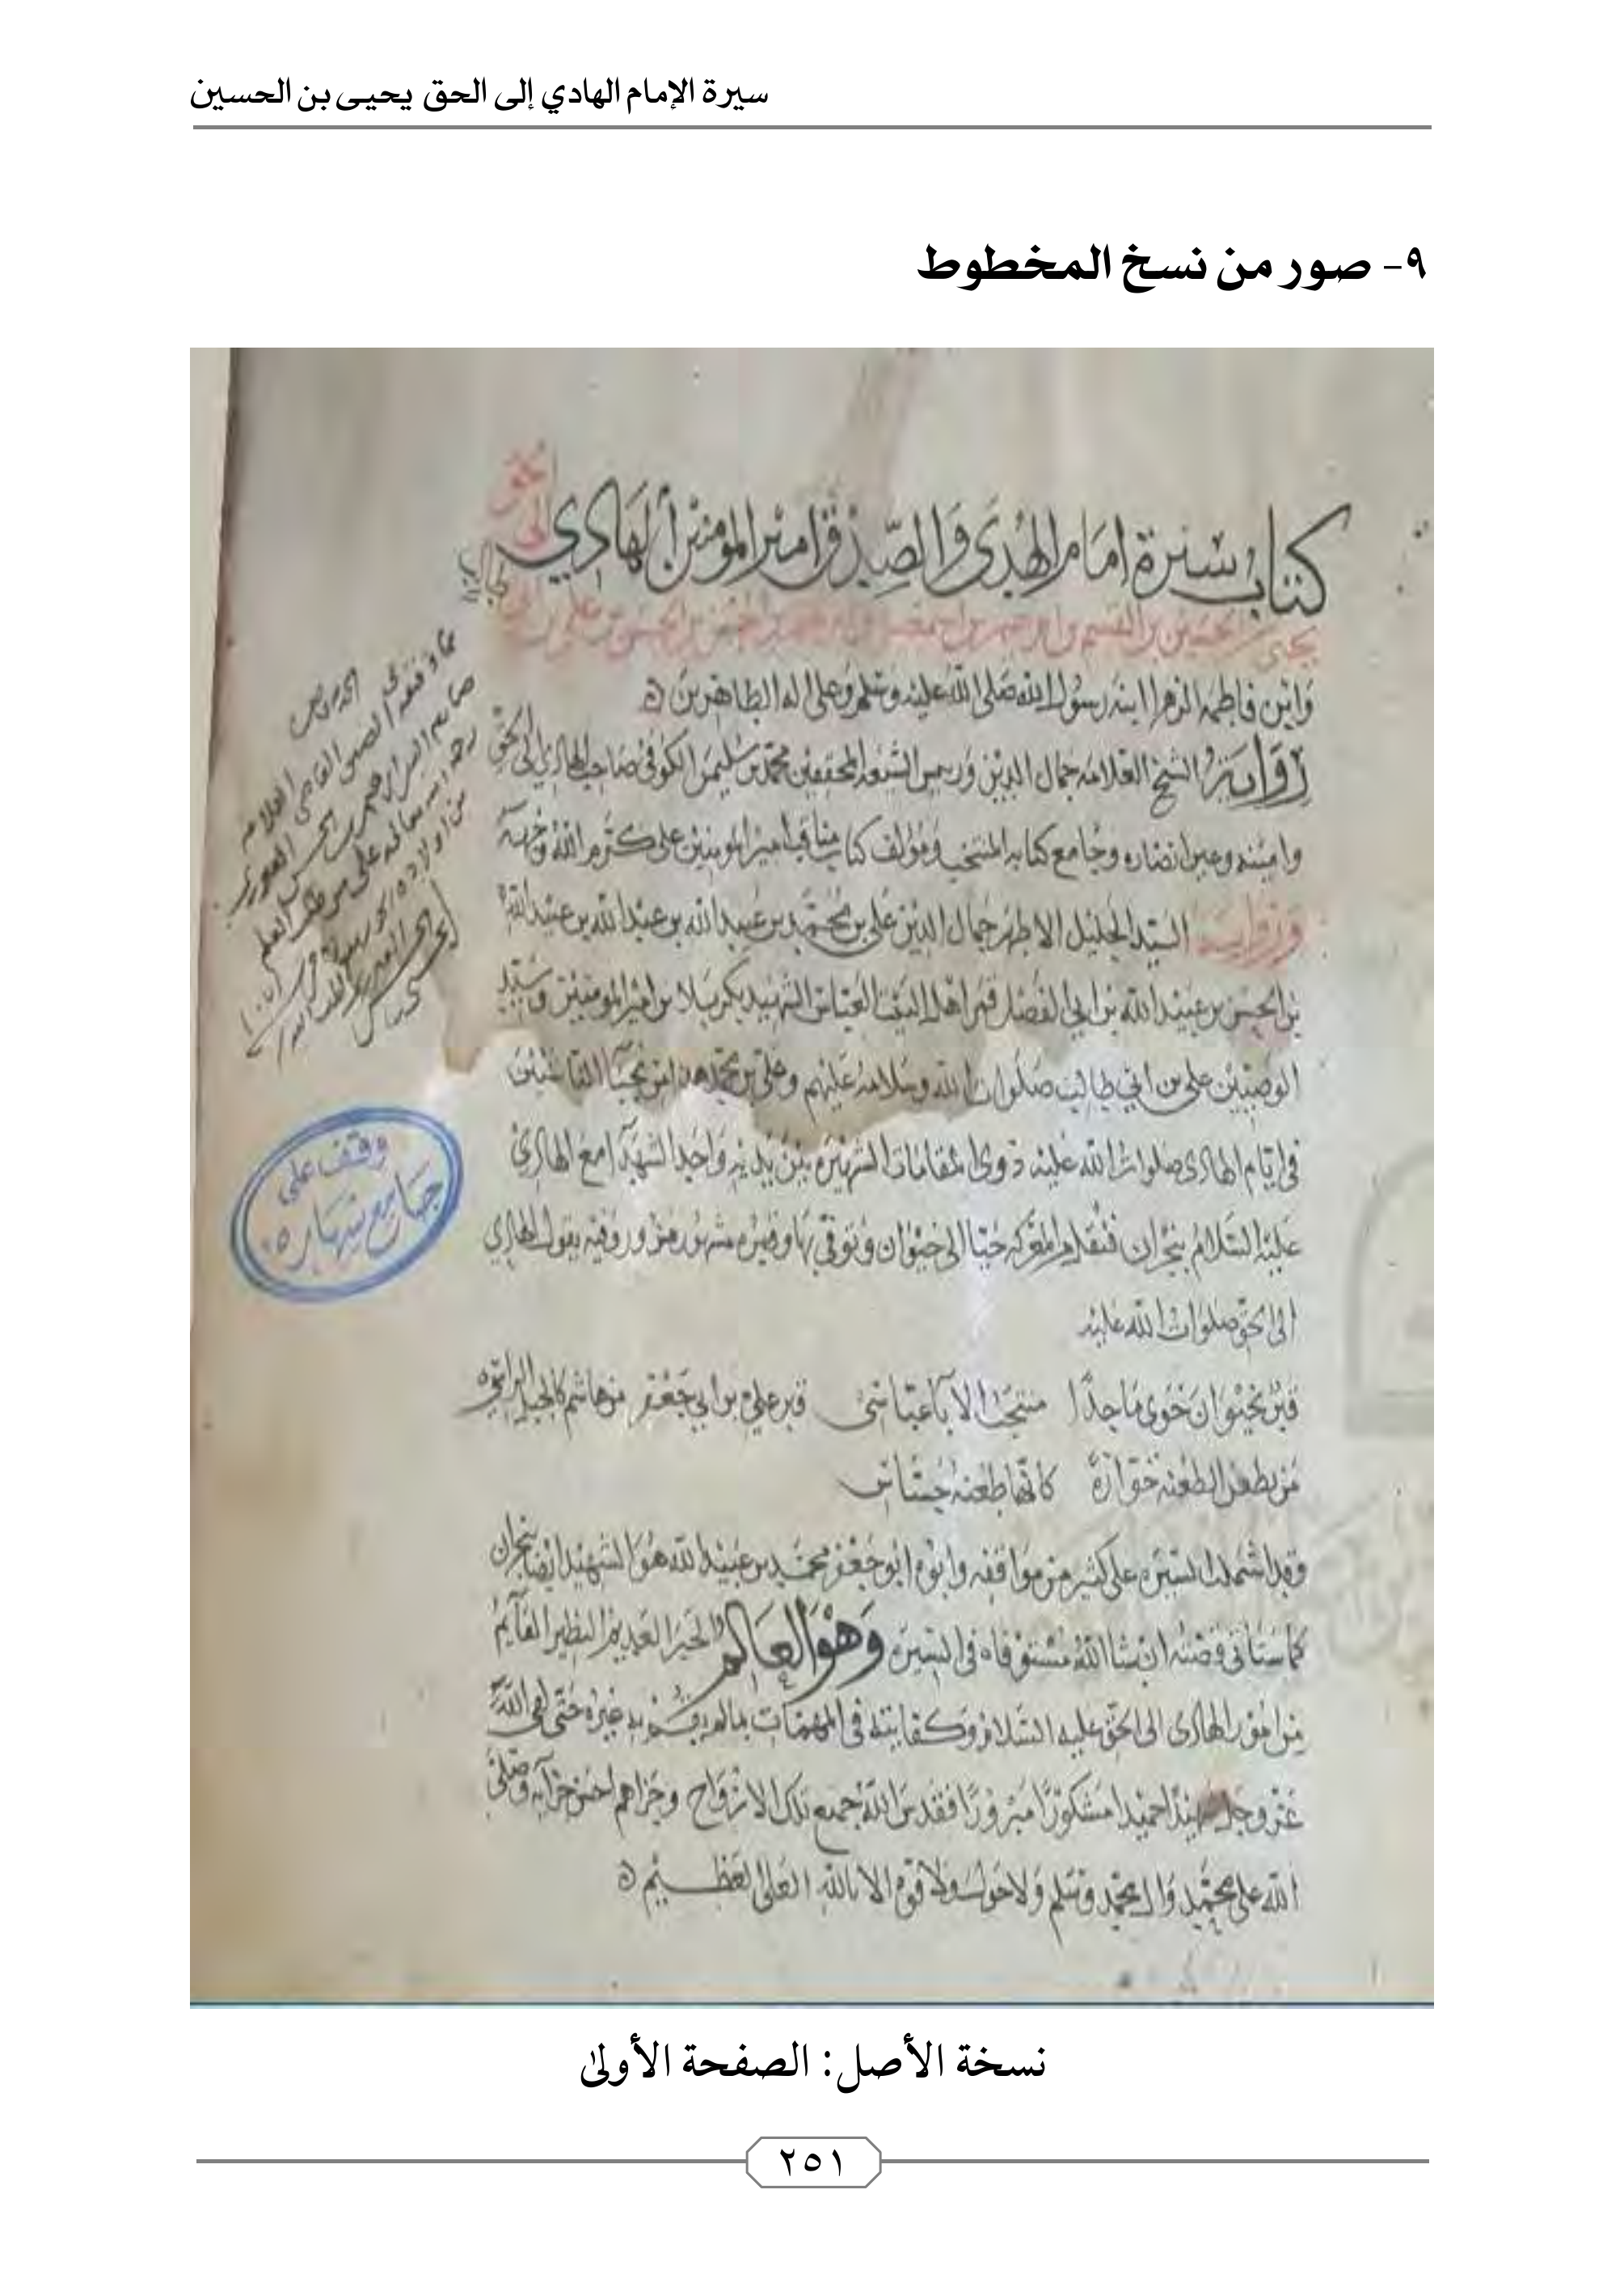 سيرة الإمام الهادي إلى الحق يحيى بن الحسين
٩- صور من نسخ المخطوط
كتاب سيرة امام الهدى والصدق امير المومنين الهادي
الى الحق
يحيى بن الحسين بن القسم بن ابرهيم بن
وابن فاطمه الزهرا ابنة رسول الله صلى الله عليه وسلم وعلى اله الطاهرين
رواية الشيخ العلامه جمال الدين ورييس الشيعه المحققين محمد بن سليمن الكوفي صاحب الهادي الى الحق
وامينه وعين انصاره وجامع كتابه المنتخب ومؤلف كتاب مناقب امير المومنين على كرم الله وجهه
ومن رواية السيد الجليل الاطهر جمال الدين علي بن محمد بن عبيد الله بن عبد الله بن عبيد الله
بن الحسن بن عبيد الله بن ابي الفضل قمر اهل البيت العباس الشهيد بكربلا بن امير المومنين وسيد
الوصيين علي بن ابي طالب صلوات الله وسلامه عليهم وعلي بن محمد هذا من نجبآ الناشئين
في ايام الهادى صلوات الله عليه ذوى المقامات الشهيره بين يديه واحد الشهدآ مع الهادى
عليه السلام بنجران فنقل من المعركه حيا الى خيوان وتوفي بها وقبره مشهور مزور وفيه يقول الهادي
الى الحق صلوات الله عليه
قبر بخيوان حوى ماجدًا منتجب الآبآ عباسى قبر علي بن ابي جعفر من هاشم كالجبل الراسي
من يطعن الطعنه خوارة كانها طعنة جساس
وقد اشتملت السيره على كثير من مواقفه وابوه ابو جعفر محمد بن عبيد الله هو الشهيد ايضا بنجران
كما ستاتى قصته ان شا الله مستوفاه في السيره وهو العالم والحبر العديم النظير القآيم
من امور الهادى الى الحق عليه السلام وكفايته في المهمات بما لم يقم به غيره حتى لقي الله
عز وجل شهيدًا حميدا مشكورًا مبرورًا فقدس الله جميع تلك الارواح وجزاهم احسن جزآيه وصلى
الله على محمد وال محمد وسلم ولا حول ولا قوه الا بالله العلى العظيم
وقف على
جامع شهاره
نسخة الأصل: الصفحة الأولى
٢٥١